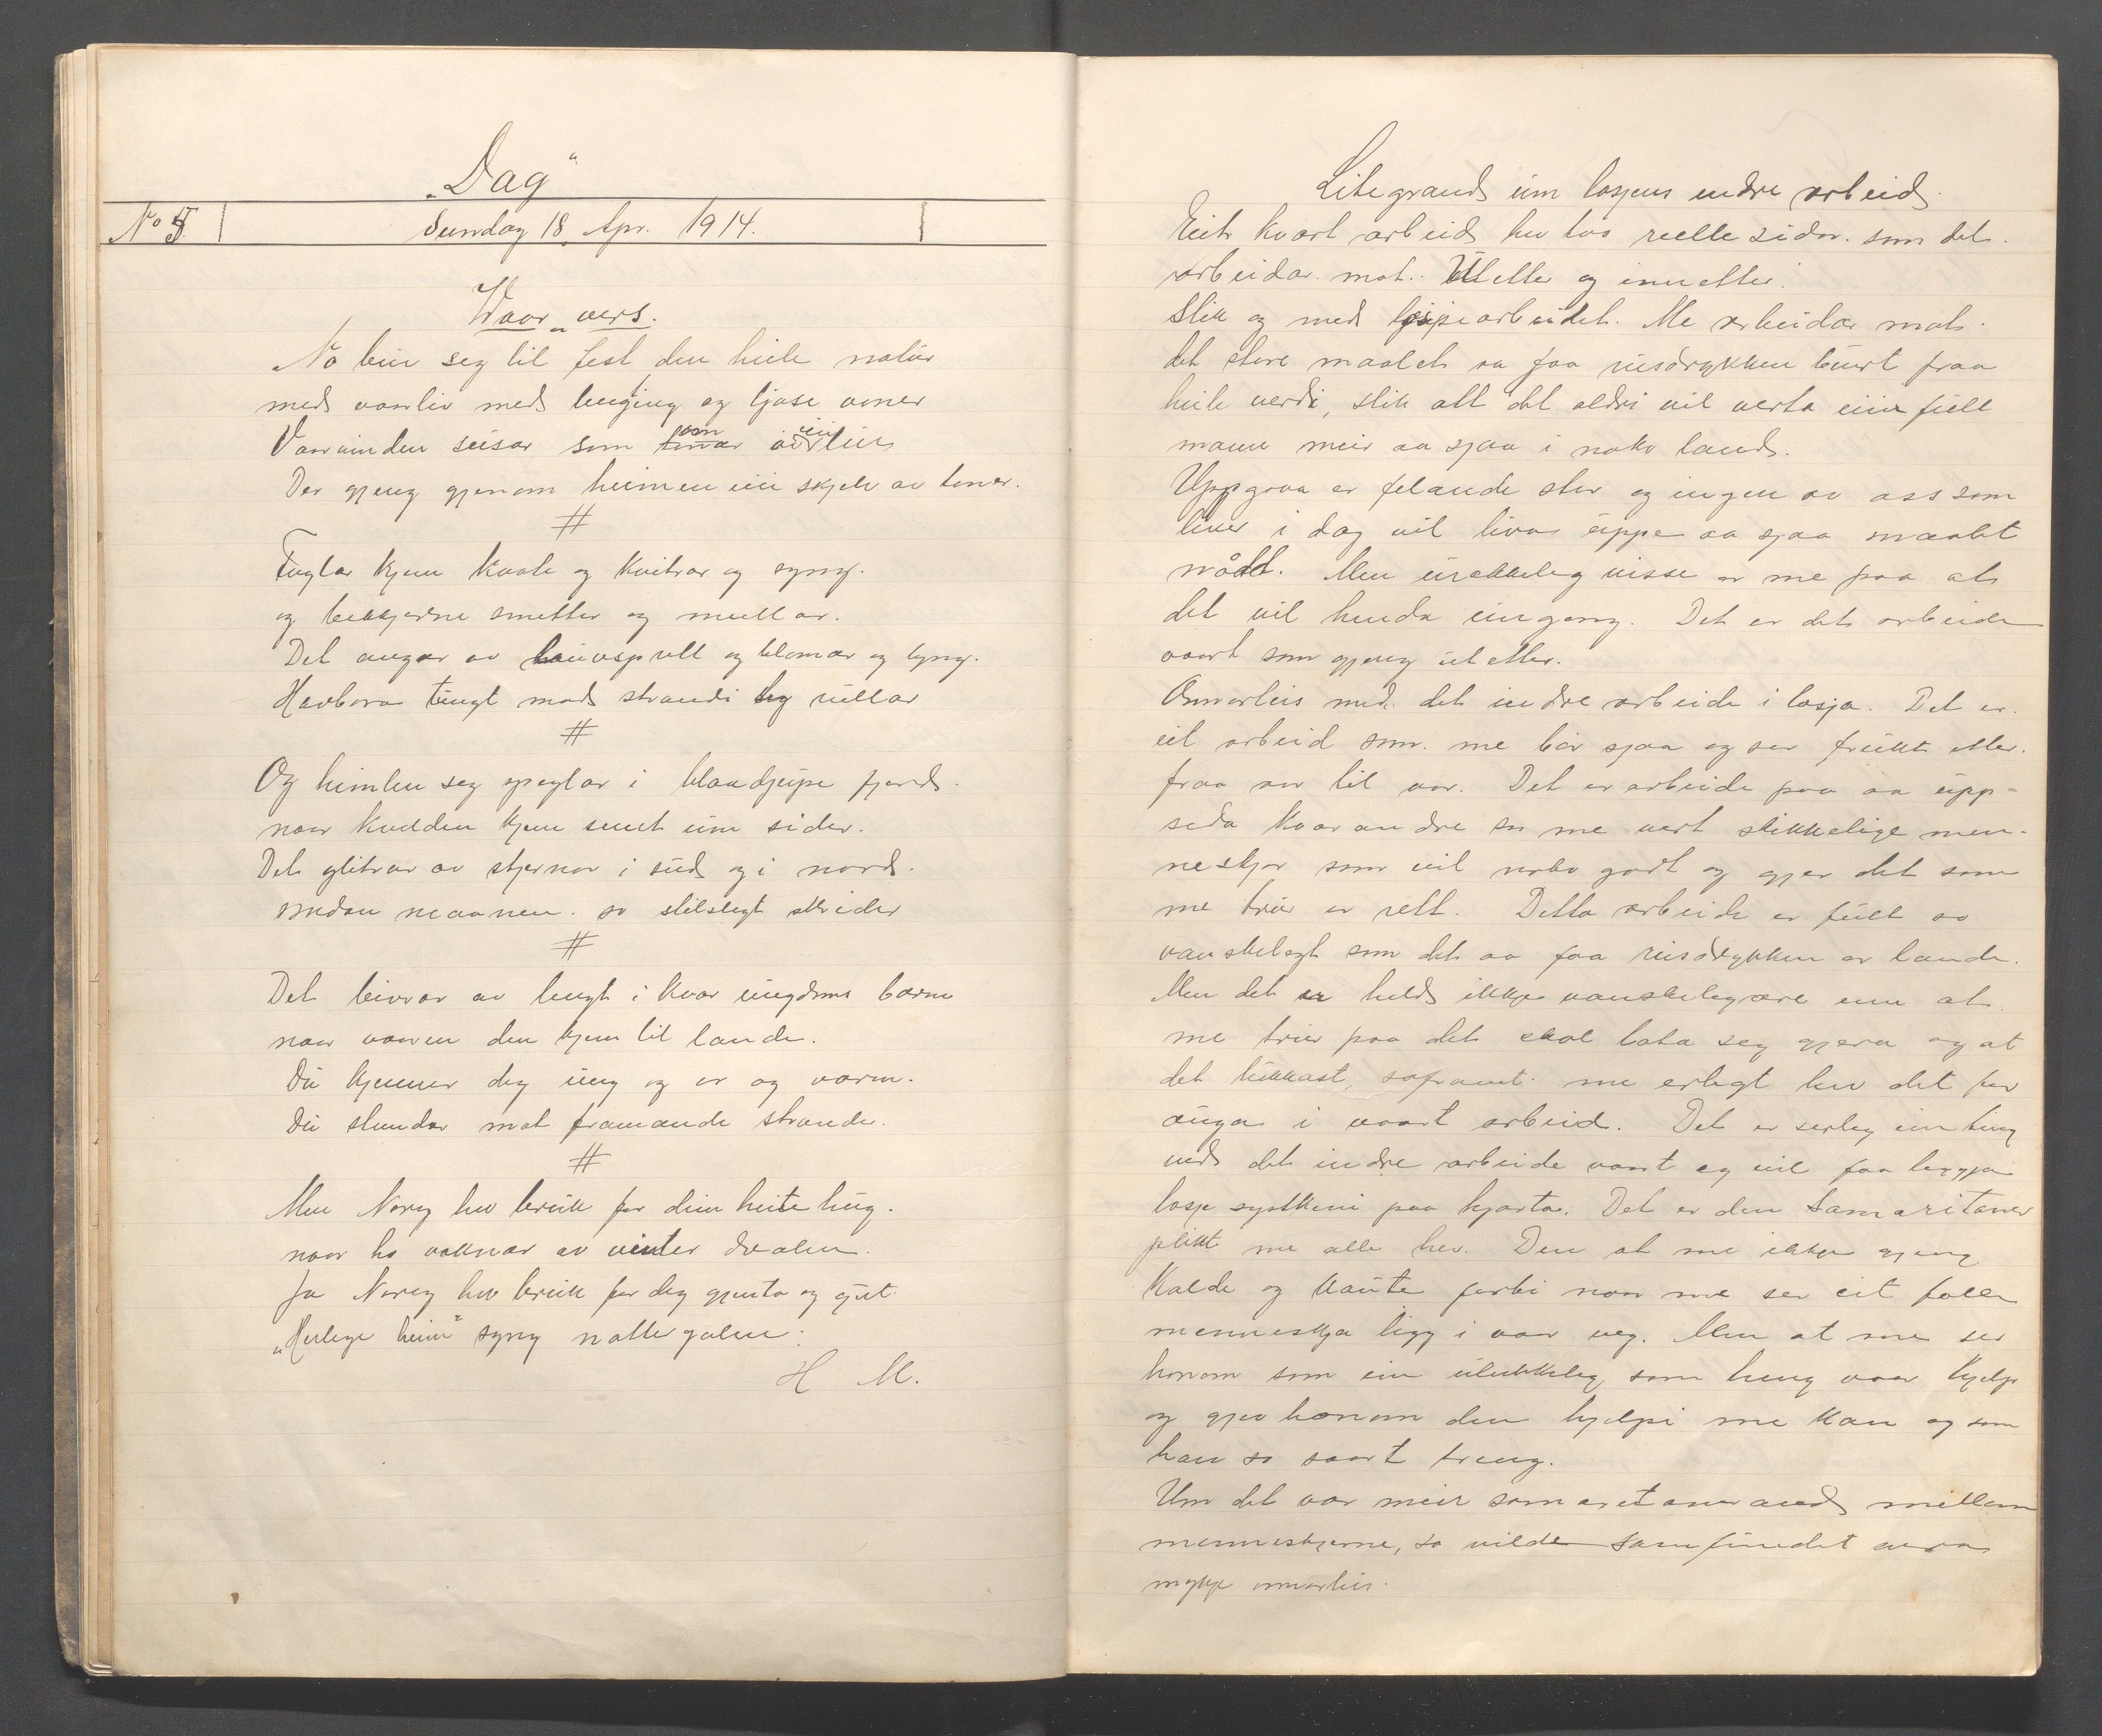 „Dag“
No 5.
Sundag 18. Apr. 1914.
Vaar-vers.
No bur seg til fest den heile natur
med vaarliv med lenging og ljose voner
Vaarvinden susar som
Der gjeng gjenom heimen ein skjelv av toner.
#
Fuglar kjem kaate og kvitrar og syng.
og bekkjerne smetter og mullar.
Det angar av lauvsprett og blomar og lyng.
Havbora tungt mod strandi seg rullar
#
Og himlen seg speglar i blaadjupe fjord.
naar kvelden kjem sent um sider.
Det glitrar av stjernor i sud og i nord.
medan maanen so stilslegt skrider
#
Det bivrar av lengt i kvar ungdoms barm
naar vaaren den kjem til lande.
Du kjenner deg ung og er og varm.
Du stundar mot framande strande.
#
Men Noreg hev bruk for din heite hug.
naar ho vaknar av vinter dvalen.
Ja Noreg hev bruk for deg gjenta og gut.
„Herlege heim“ syng nattergalen:
H M.
Litegrand um losjens indre arbeid.
Eit kvart arbeid hev tvo reelle sidor. som det
arbeidar mot. Utetter og innetter.
Slik og med losjearbeidet. Me arbeidar mot
det store maalet aa faa rusdrykken burt fraa
heile verdi, slik att det aldri vil verta ein full
mann meir aa sjaa i noko land.
Uppgaava er felande stor og ingen av oss som
liver i dag vil liva uppe aa sjaa maalet
nådd. Men urokkeleg visse er me paa at
det vil henda eingong. Det er det arbeide
vaart som gjeng utetter.
Annarleis med det indre arbeide i losja. Det er
eit arbeid som me bør sjaa og ser frukt etter
fraa aar til aar. Det er arbeide paa aa upp-
seda kvarandre so me vert slikkelige men-
neskjor som vil noko godt og gjer det som
me trur er rett. Detta arbeide er fullt so
vanskelegt som det aa faa rusdrykken av lande.
Men det er held ikkje vanskelegare enn at
me truer paa det skal lata seg gjera og at
det lukkast, soframt me erlegt hev det for
auga i vaart arbeid. Det er serleg ein ting
ved det indre arbeide vaart eg vil faa leggja
losje syskeni paa hjarta. Det er den Samaritaner
plikt me alle hev. Den at me ikkje gjeng
kalde og kaute forbi naar me ser eit falle
menneskja ligg i vaar veg. Men at me ser
honom som ein ulukkeleg som treng vaar hjelp
og gjev honom den hjelpi me kan og som
han so saart treng.
Um det var meir samaritanerand millom
menneskjerne, so vilde samfundet vera
mykje annarleis.